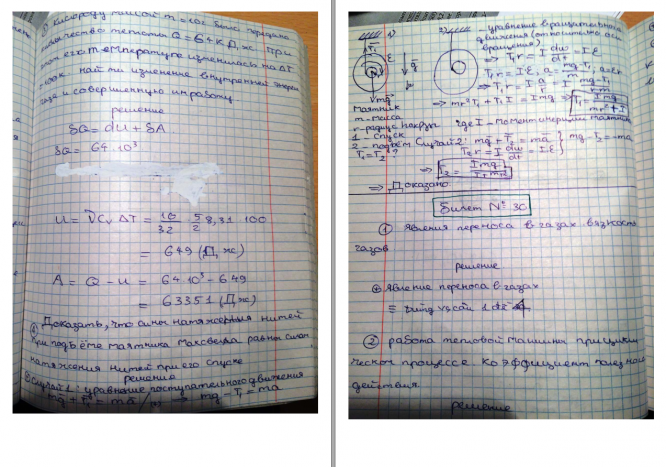 Кислороду массой m = 10г было передано
количество теплоты Q = 64 кДж. При
этом его температура изменилась на ΔT
= 100К. Найти изменение внутренней энер
гии и совершенную им работу.
решение
δQ = dU + δA
δQ = 64·10³
U = νCᵥΔT = 10/32 · 5/2 8,31·100
= 649 (Дж)
A = Q - U = 64·10³ - 649
= 63351 (Дж)
Доказать, что силы натяжения нитей
при подъёме маятника Максвелла равны силам
натяжения нитей при его спуске
решение
Случай 1: уравнение поступательного движения
mg + T₁ = ma => mg - T₁ = ma
1) 2) - уравнение вращательного
движения (относительно оси
вращения)
=> T₁r = I dω/dt = Iε
T₁r = Iε, a = (mg-T₁)/m
=> T₁r = I a/r = I (mg-T₁)/rm
Маятник => mr²T₁ + T₁I = Img => T₁ = Img/(mr²+I)
m-масса
r-радиус где I - момент инерции маятника
1 - спуск
2 - подъём Случай 2: mg + T₂ = ma } mg - T₂ = -ma
T₁ = T₂ ? T₂r = I dω/dt = Iε
=> T₂ = Img/(I+mr²)
=> Доказано
Билет № 30
① Явления переноса в газах. Вязкость
газов
решение
Явление переноса в газах
② работа тепловой машины при цикли
ческом процессе. Коэффициент полезного
действия.
решение